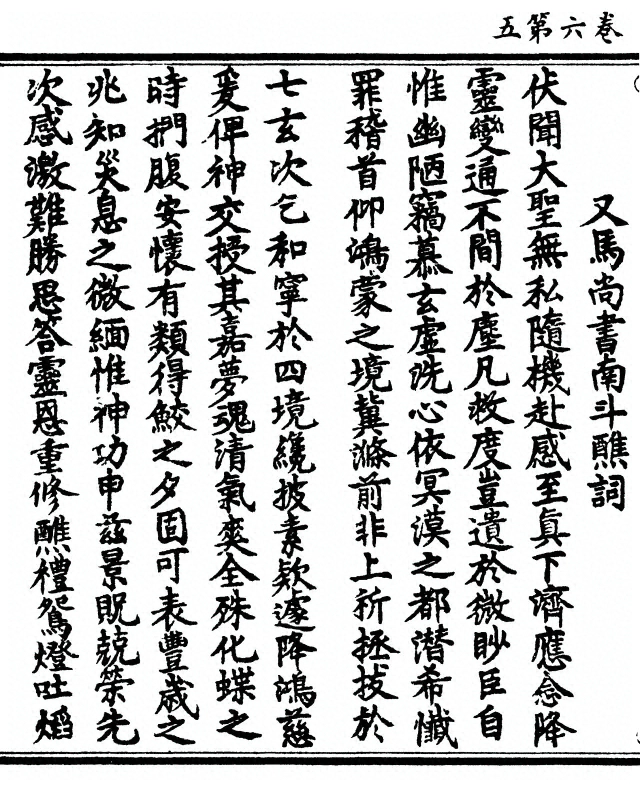 五第六卷
又馬尚書南斗醮詞
伏聞大聖無私隨機赴感至真下濟應念降
靈變通不間於塵凡救度豈遺於微眇臣自
惟幽陋竊慕玄虛洗心依冥漠之都潛希懺
罪稽首仰鴻蒙之境冀滌前非上祈拯拔於
七玄次乞和寧於四境纔披素欵遽降鴻慈
爰俾神交授其嘉夢魂清氣爽全殊化蝶之
時捫腹安懷有類得鮫之夕固可表豐歲之
兆知災息之微緬惟神功申茲景貺兢榮先
次感激難勝思答靈恩重修醮禮鴛燈吐熖